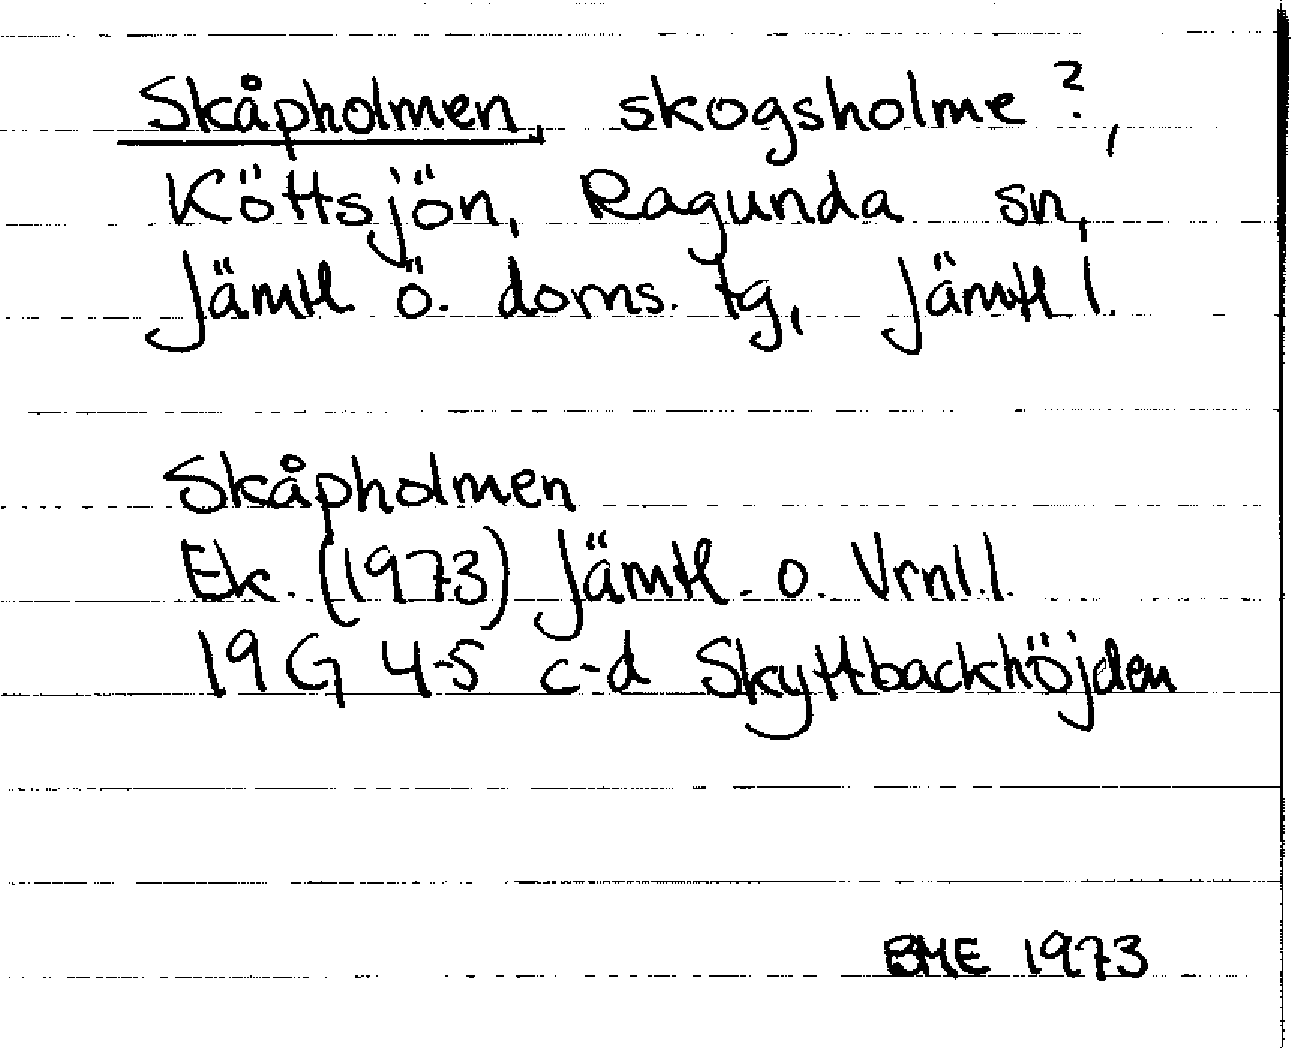 Skåpholmen, skogsholme?,
Köttsjön, Ragunda sn,
Jämtl ö. doms. tg, Jämtl l.
Skåpholmen
Ek. (1973) Jämtl. o. Vrnl.l.
19 G 4-5 c-d Skyttbackhöjden
BME 1973